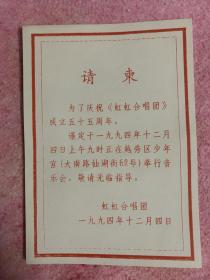 请柬
为了庆祝《虹虹合唱团》
成立五十五周年。
谨定十一九九四年十二月
四日上午九时正在越秀区少年
宫(大南路仙湖街69号)举行音
乐会。敬请光临指导。
虹虹合唱团
一九九四年十二月四日